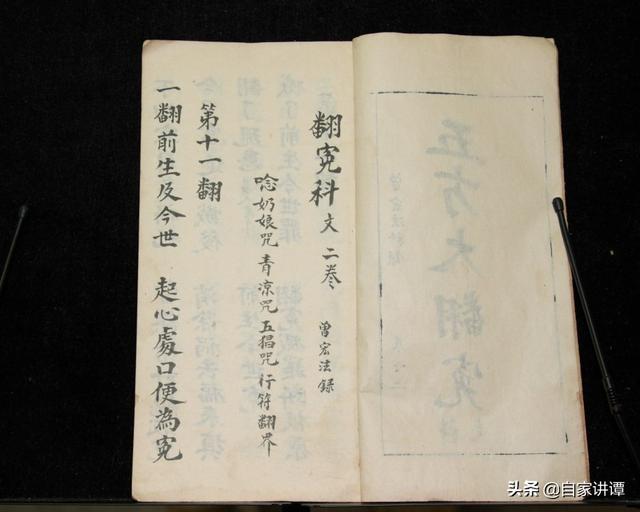 五方大翻冤
翻冤科文二卷 曾宏法録
唸奶娘咒 青凉咒 五猖咒 行符翻界
第十一翻
一翻前生及今世 起心處口便為冤
头条 @自家讲谭